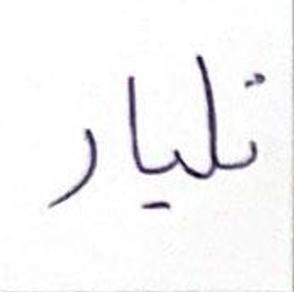 تليار